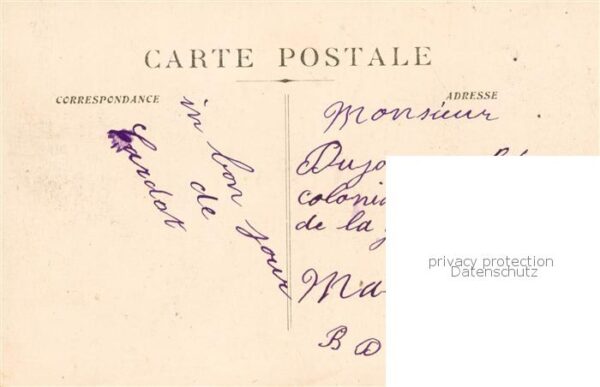 CARTE POSTALE
CORRESPONDANCE
ADRESSE
in bon jour
de
Lardot
Monsieur
Dujo
coloni
de la
Ma
B D
privacy protection
Datenschutz